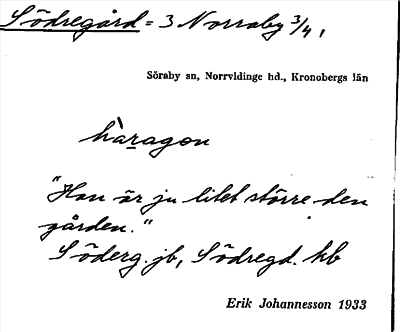 Södregård = 3 Norraby 3/4,
Söraby sn, Norrvidinge hd., Kronobergs län
hàragon
"Hon är ju litet större den
gården."
Söderg. jb, Södregd. kb
Erik Johannesson 1933